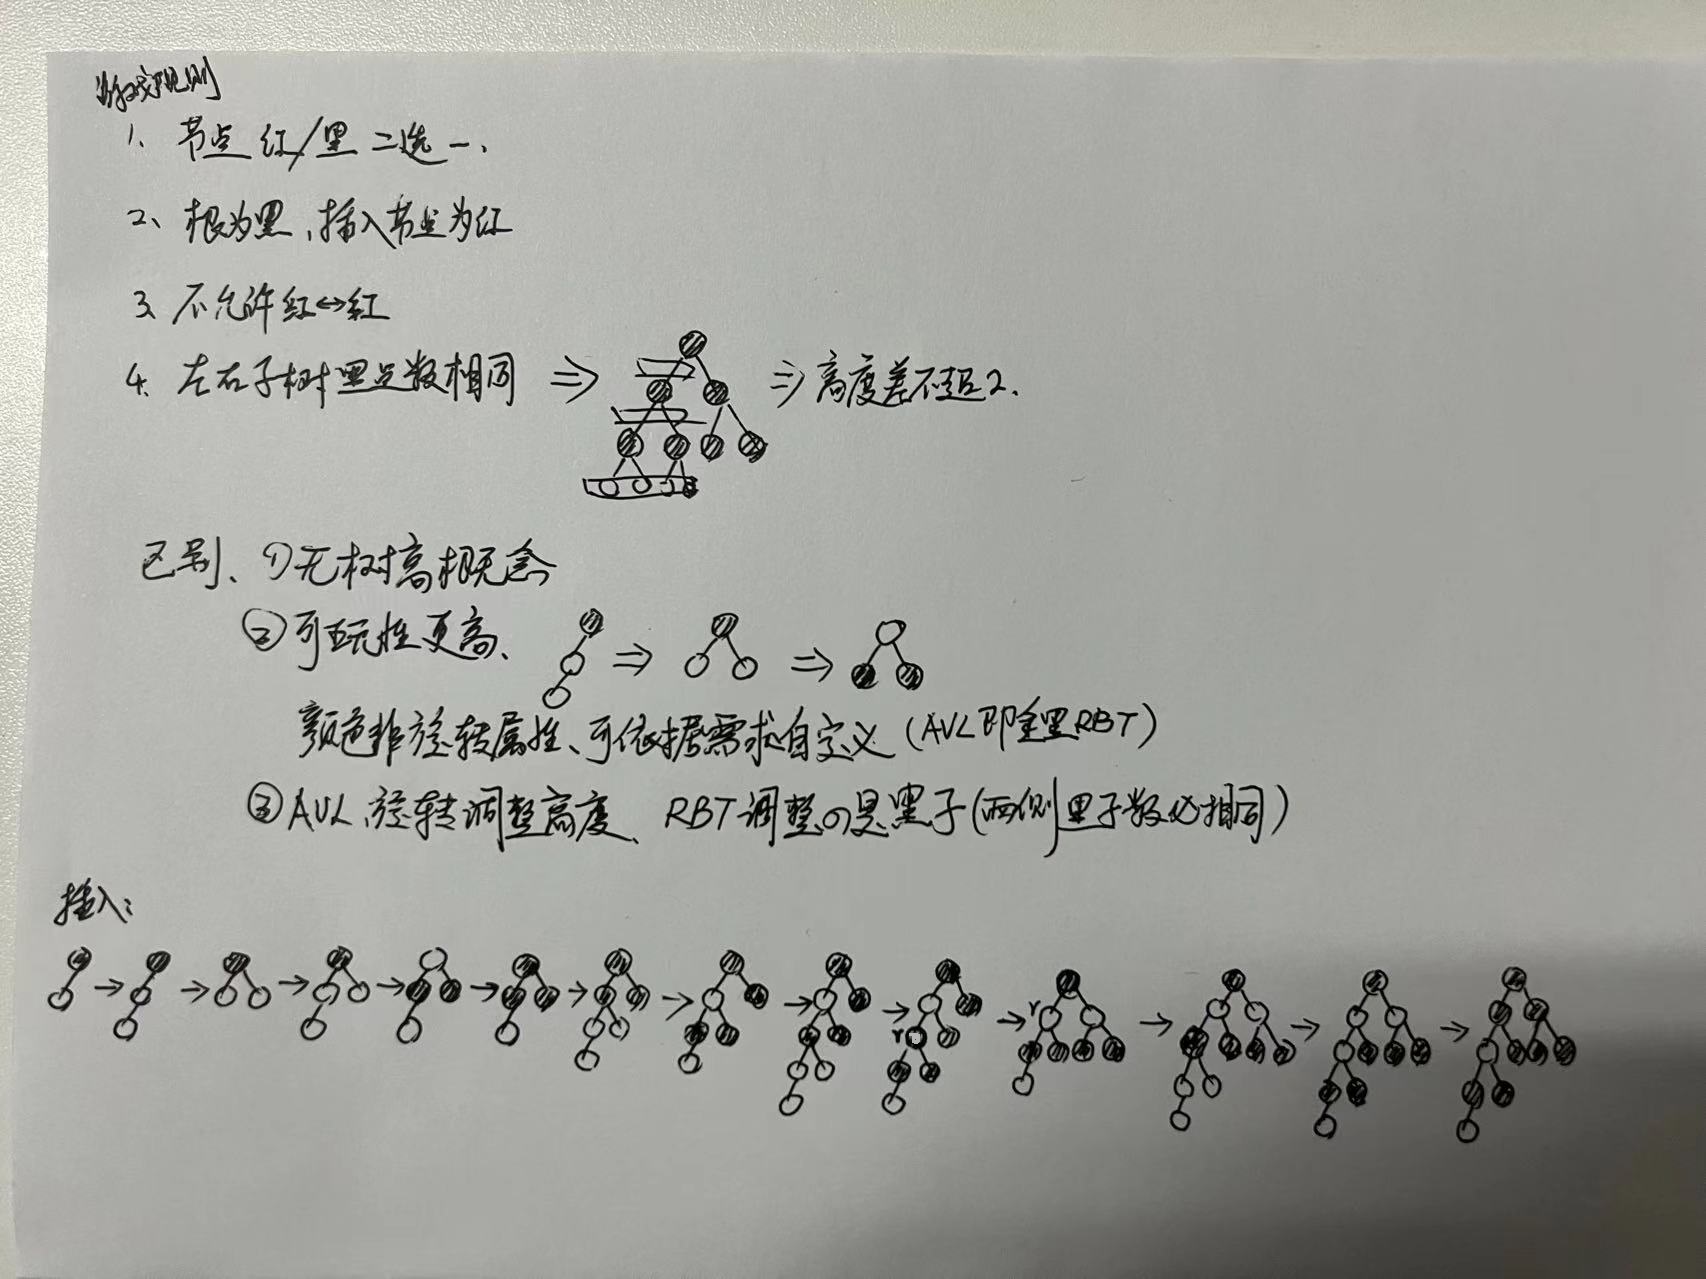 游戏规则
1、节点 红/黑 二选一、
2、根为黑、插入节点为红
3、不允许红↔红
4、左右子树黑点数相同 ⇒ ⇒高度差不超2.
区别、①无树高概念
②可玩性更高、 ⇒ ⇒
颜色非旋转属性、可依据需求自定义(AVL即全黑RBT)
③AVL旋转调整高度、RBT调整の是黑子(两侧黑子数必相同)
插入:
→ → → → → → → → → → → → →
r r